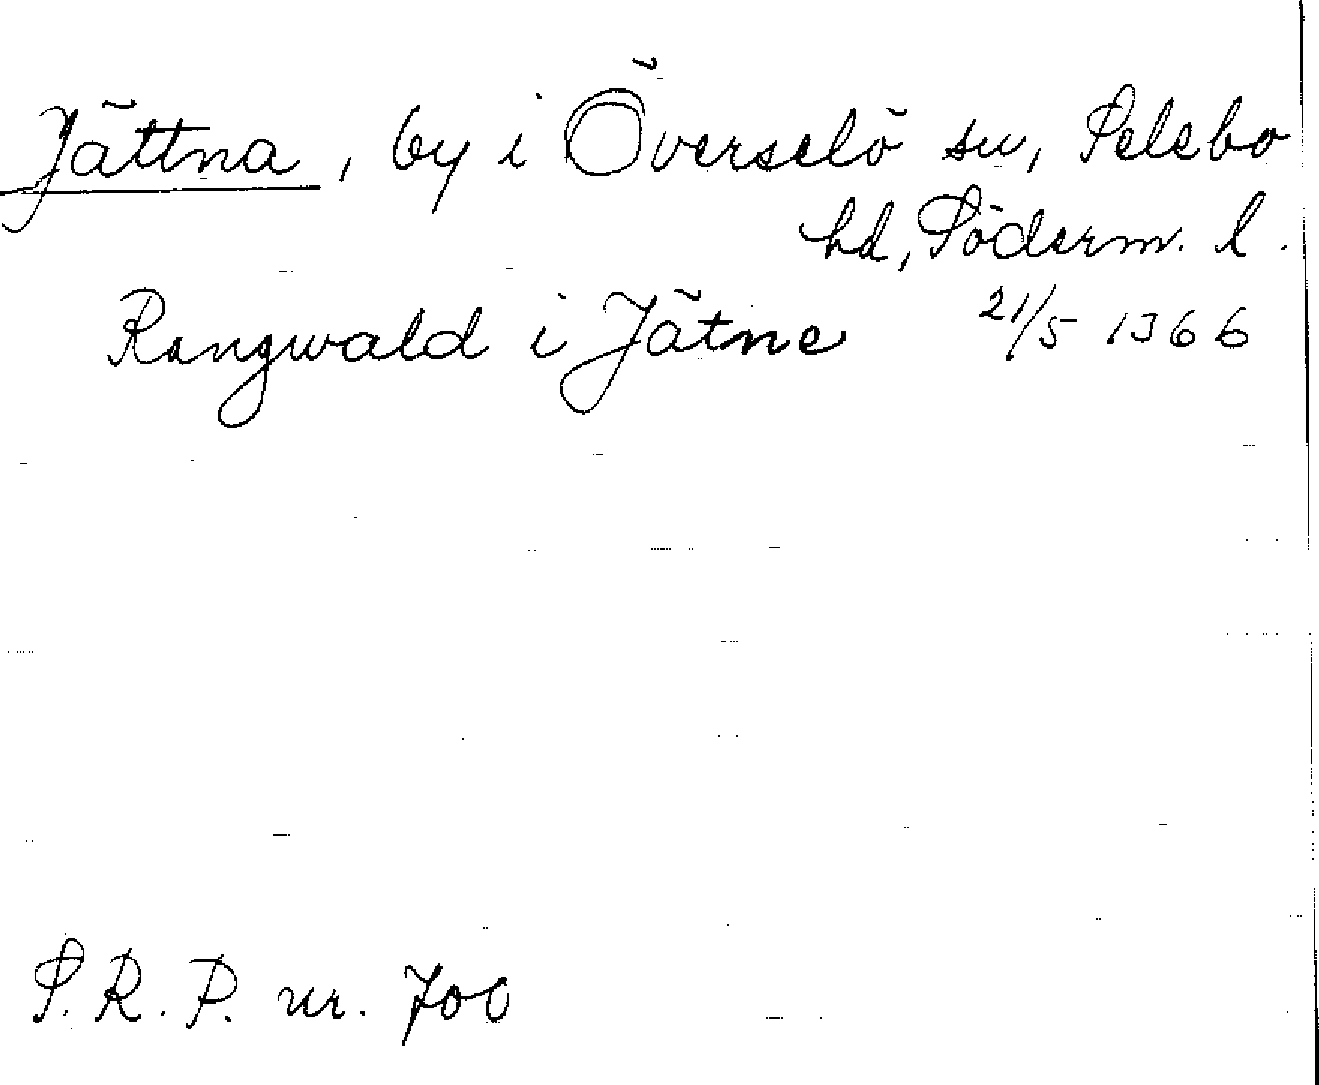 Jättna, by i Överselö sn, Selebo
hd, Söderm. l.
Rangwald i Jätne 21/5 1366
S.R.P. nr. 700